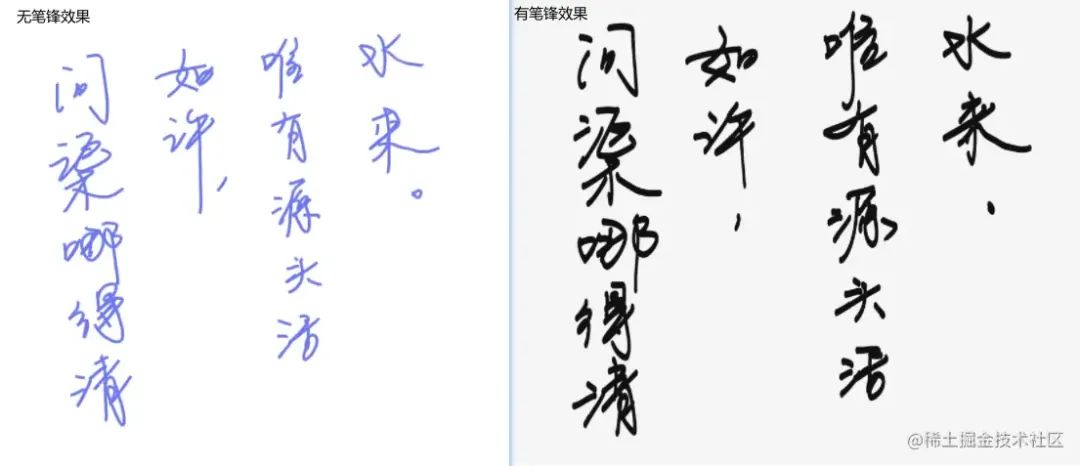 无笔锋效果
问渠哪得清
如许，
唯有源头活
水来。
有笔锋效果
问渠哪得清
如许，
唯有源头活
水来.
@稀土掘金技术社区